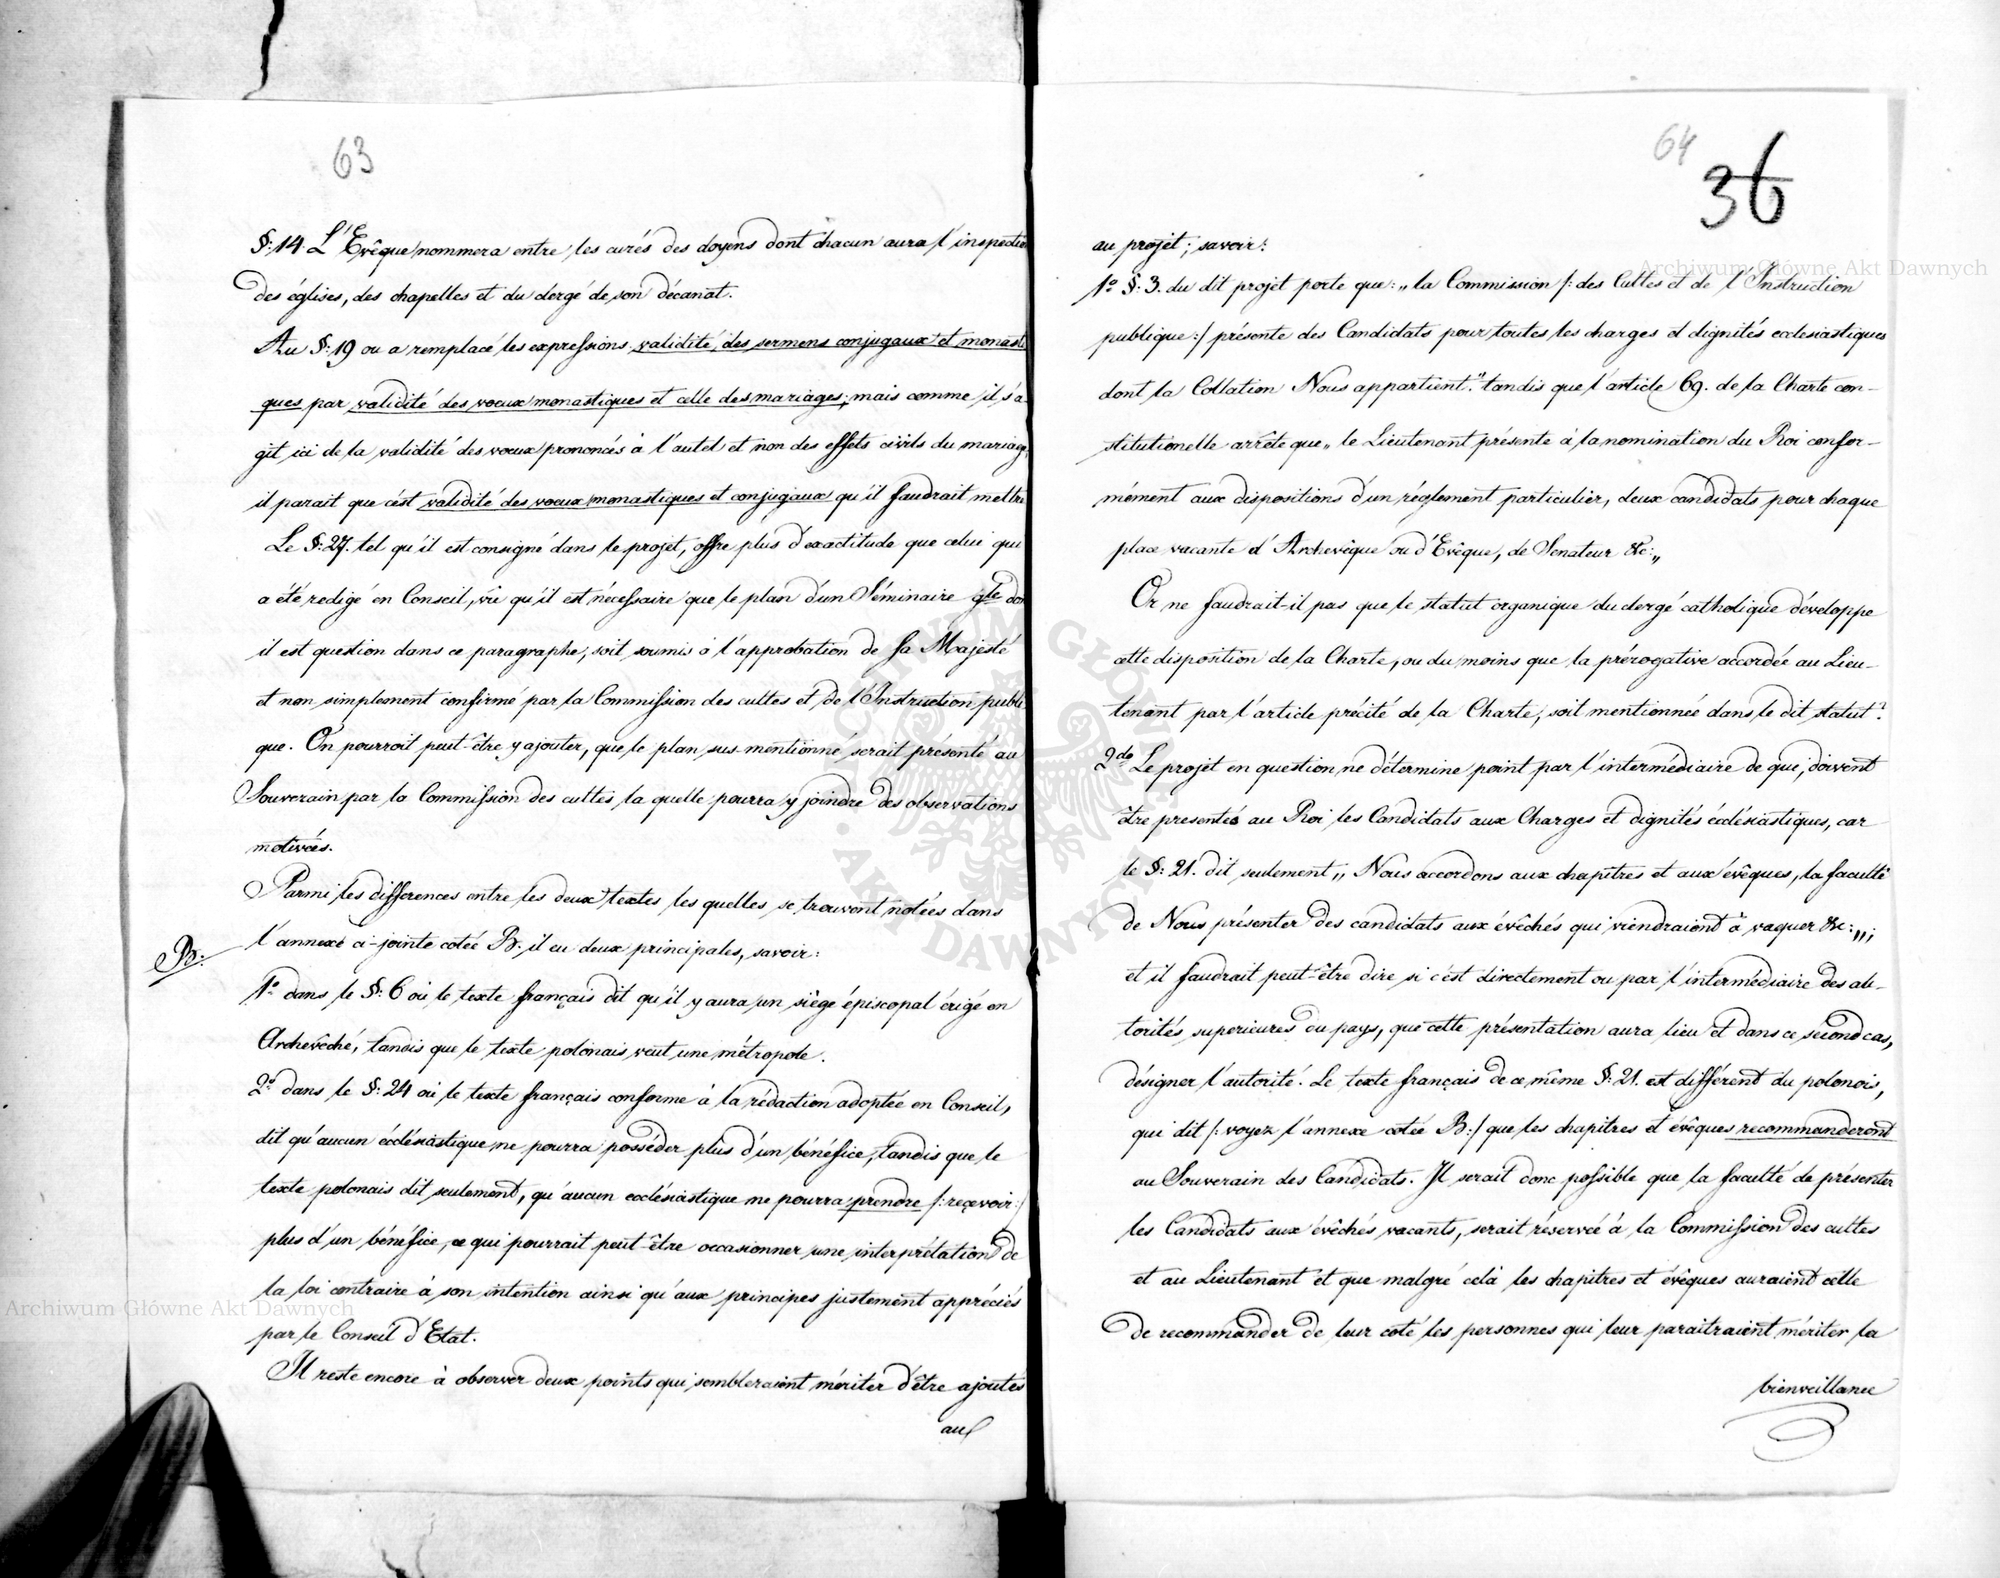 63
§: 14. L'Evêque nommera entre les curés des doyens dont chacun aura l'inspectio
des églises, des chapelles et du clergé de son décanat.
Au §: 19 ou a remplacé les expressions validité des sermens conjugaux et monasti
ques par validité des voeux monastiques et celle des mariages; mais comme il s'a
git ici de la validité des voeux prononcés à l'autel et non des effets civils du mariage,
il parait que c'est validité des voeux monastiques et conjugaux qu'il faudrait mettre
Le §: 27. tel qu'il est consigné dans le projet, offre plus d'exactitude que celui qui
a été redigé en Conseil, vû qu'il est nécessaire que le plan d'un Séminaire gle don
il est question dans ce paragraphe, soit soumis à l'approbation de Sa Majesté
et non simplement confirmé par la Commission des cultes et de l'Instruction publi
que. On pourroit peut-être y ajouter, que le plan sus-mentionné serait présenté au
Souverain par la Commission des cultes la quelle pourra y joindre des observations
motivées.
Parmi les differences entre les deux textes les quelles se trouvent notées dans
B. l'annexe ci-jointe cotée B. il en deux principales, savoir:
1º dans le §: 6 où le texte français dit qu'il y aura un siège épiscopal érigé en
Archevêché, tandis que le texte polonais veut une métropole.
2º dans le §: 24 où le texte français conforme à la rédaction adoptée en Conseil,
dit qu'aucun écclésiastique ne pourra posséder plus d'un bénéfice, tandis que le
texte polonais dit seulement, qu'aucun ecclésiastique ne pourra prendre /: reçevoir :/
plus d'un bénéfice, ce qui pourrait peut-être occasionner une interprétation de
la loi contraire à son intention ainsi qu'aux principes justement appréciés
par le Conseil d'Etat.
Il reste encore à observer deux points qui sembleraient mériter d'être ajoutés
au
64
36
au projet; savoir:
1º §: 3. du dit projet porte que: „la Commission /: des Cultes et de l'Instruction
publique :/ présente des Candidats pour toutes les charges et dignités ecclesiastiques
dont la Collation Nous appartient." tandis que l'article 69. de la Charte con-
stitutionelle arrête que „le Lieutenant présente à la nomination du Roi confor-
mément aux dispositions d'un réglement particulier, deux candidats pour chaque
place vacante d'Archevêque ou d'Evêque, de Senateur &c: „
Or ne faudrait-il pas que le statut organique du clergé catholique développe
cette disposition de la Charte, ou du moins que la prérogative accordée au Lieu-
tenant par l'article précité de la Charte, soit mentionnée dans le dit statut?
2do Le projet en question ne détermine point par l'intermédiaire de qui, doivent
être presentés au Roi les Candidats aux Charges et dignités écclésiastiques, car
le §: 21. dit seulement „Nous accordons aux chapitres et aux évêques, la faculté
de Nous présenter des candidats aux évêchés qui viendraient à vaquer &c: „;
et il faudrait peut-être dire si c'est directement ou par l'intermédiaire des au-
torités superieures du pays, que cette présentation aura lieu et dans ce second cas,
désigner l'autorité. Le texte français de ce même §: 21. est différent du polonois,
qui dit /: voyez l'annexe cotée B :/ que les chapitres et évêques recommanderont
au Souverain des Candidats. Il serait donc possible que la faculté de présenter
les Candidats aux évêchés vacants, serait réservée à la Commission des cultes
et au Lieutenant et que malgré celà les chapitres et évêques auraient celle
de recommander de leur coté les personnes qui leur paraitraient mériter la
bienveillance
Archiwum Główne Akt Dawnych
Archiwum Główne Akt Dawnych
ARCHIWUM GŁÓWNE AKT DAWNYCH